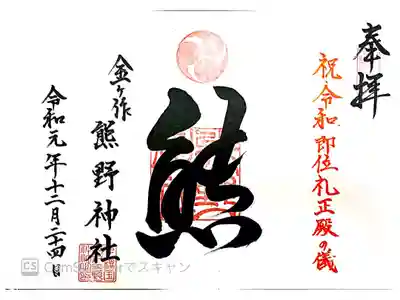 奉拝
祝・令和 即位礼正殿の儀
熊
金ヶ作
熊野神社
令和元年十二月二十四日
CS CamScannerでスキャン